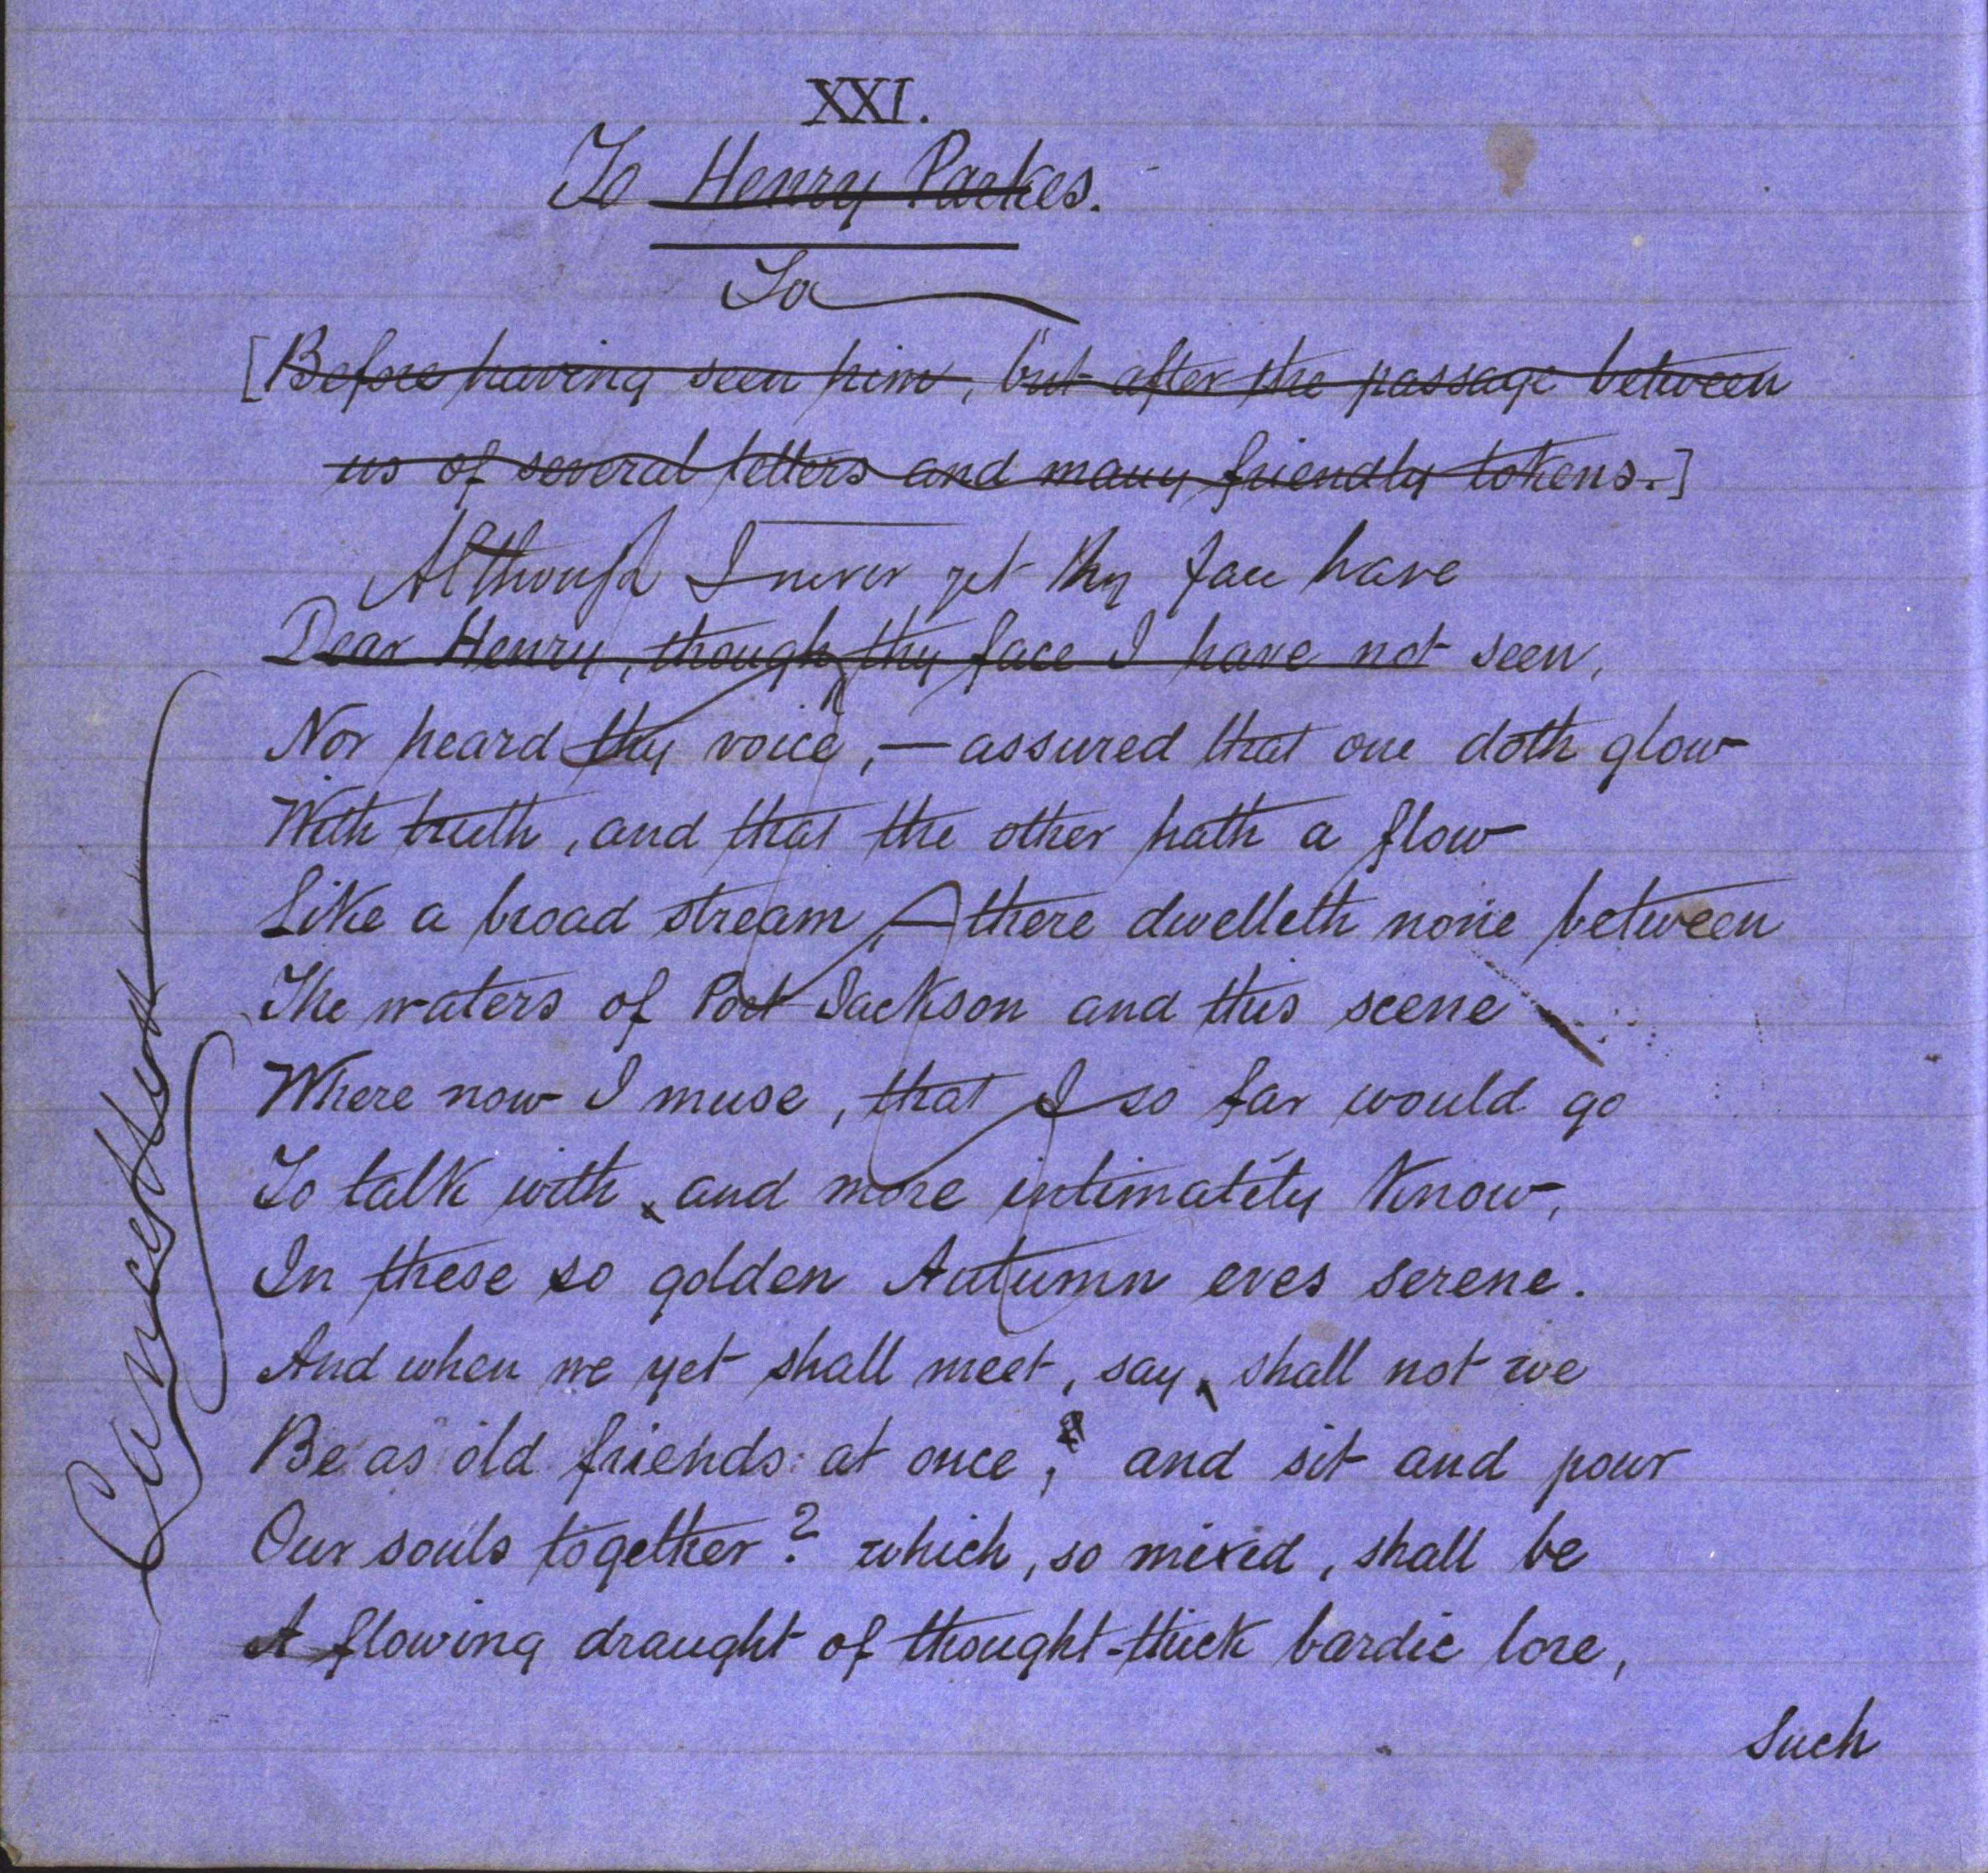 XXI.
To Henry Parkes.
To
[Before having seen him, but after the passage between
us of several letters and many friendly tokens.]
Although I never yet thy face have
Dear Henry, though thy face I have not seen,
Nor heard thy voice, — assured that one doth glow
With truth, and that the other hath a flow
Like a broad stream, — there dwelleth none between
The waters of Port Jackson and this scene
Where now I muse, that I so far would go
To talk with, and more intimately know,
In these so golden Autumn eves serene.
And when we yet shall meet, say, shall not we
Be as old friends at once, and sit and pour
Our souls together? which, so mixed, shall be
A flowing draught of thought-thick bardic lore,
Such
Cancelled